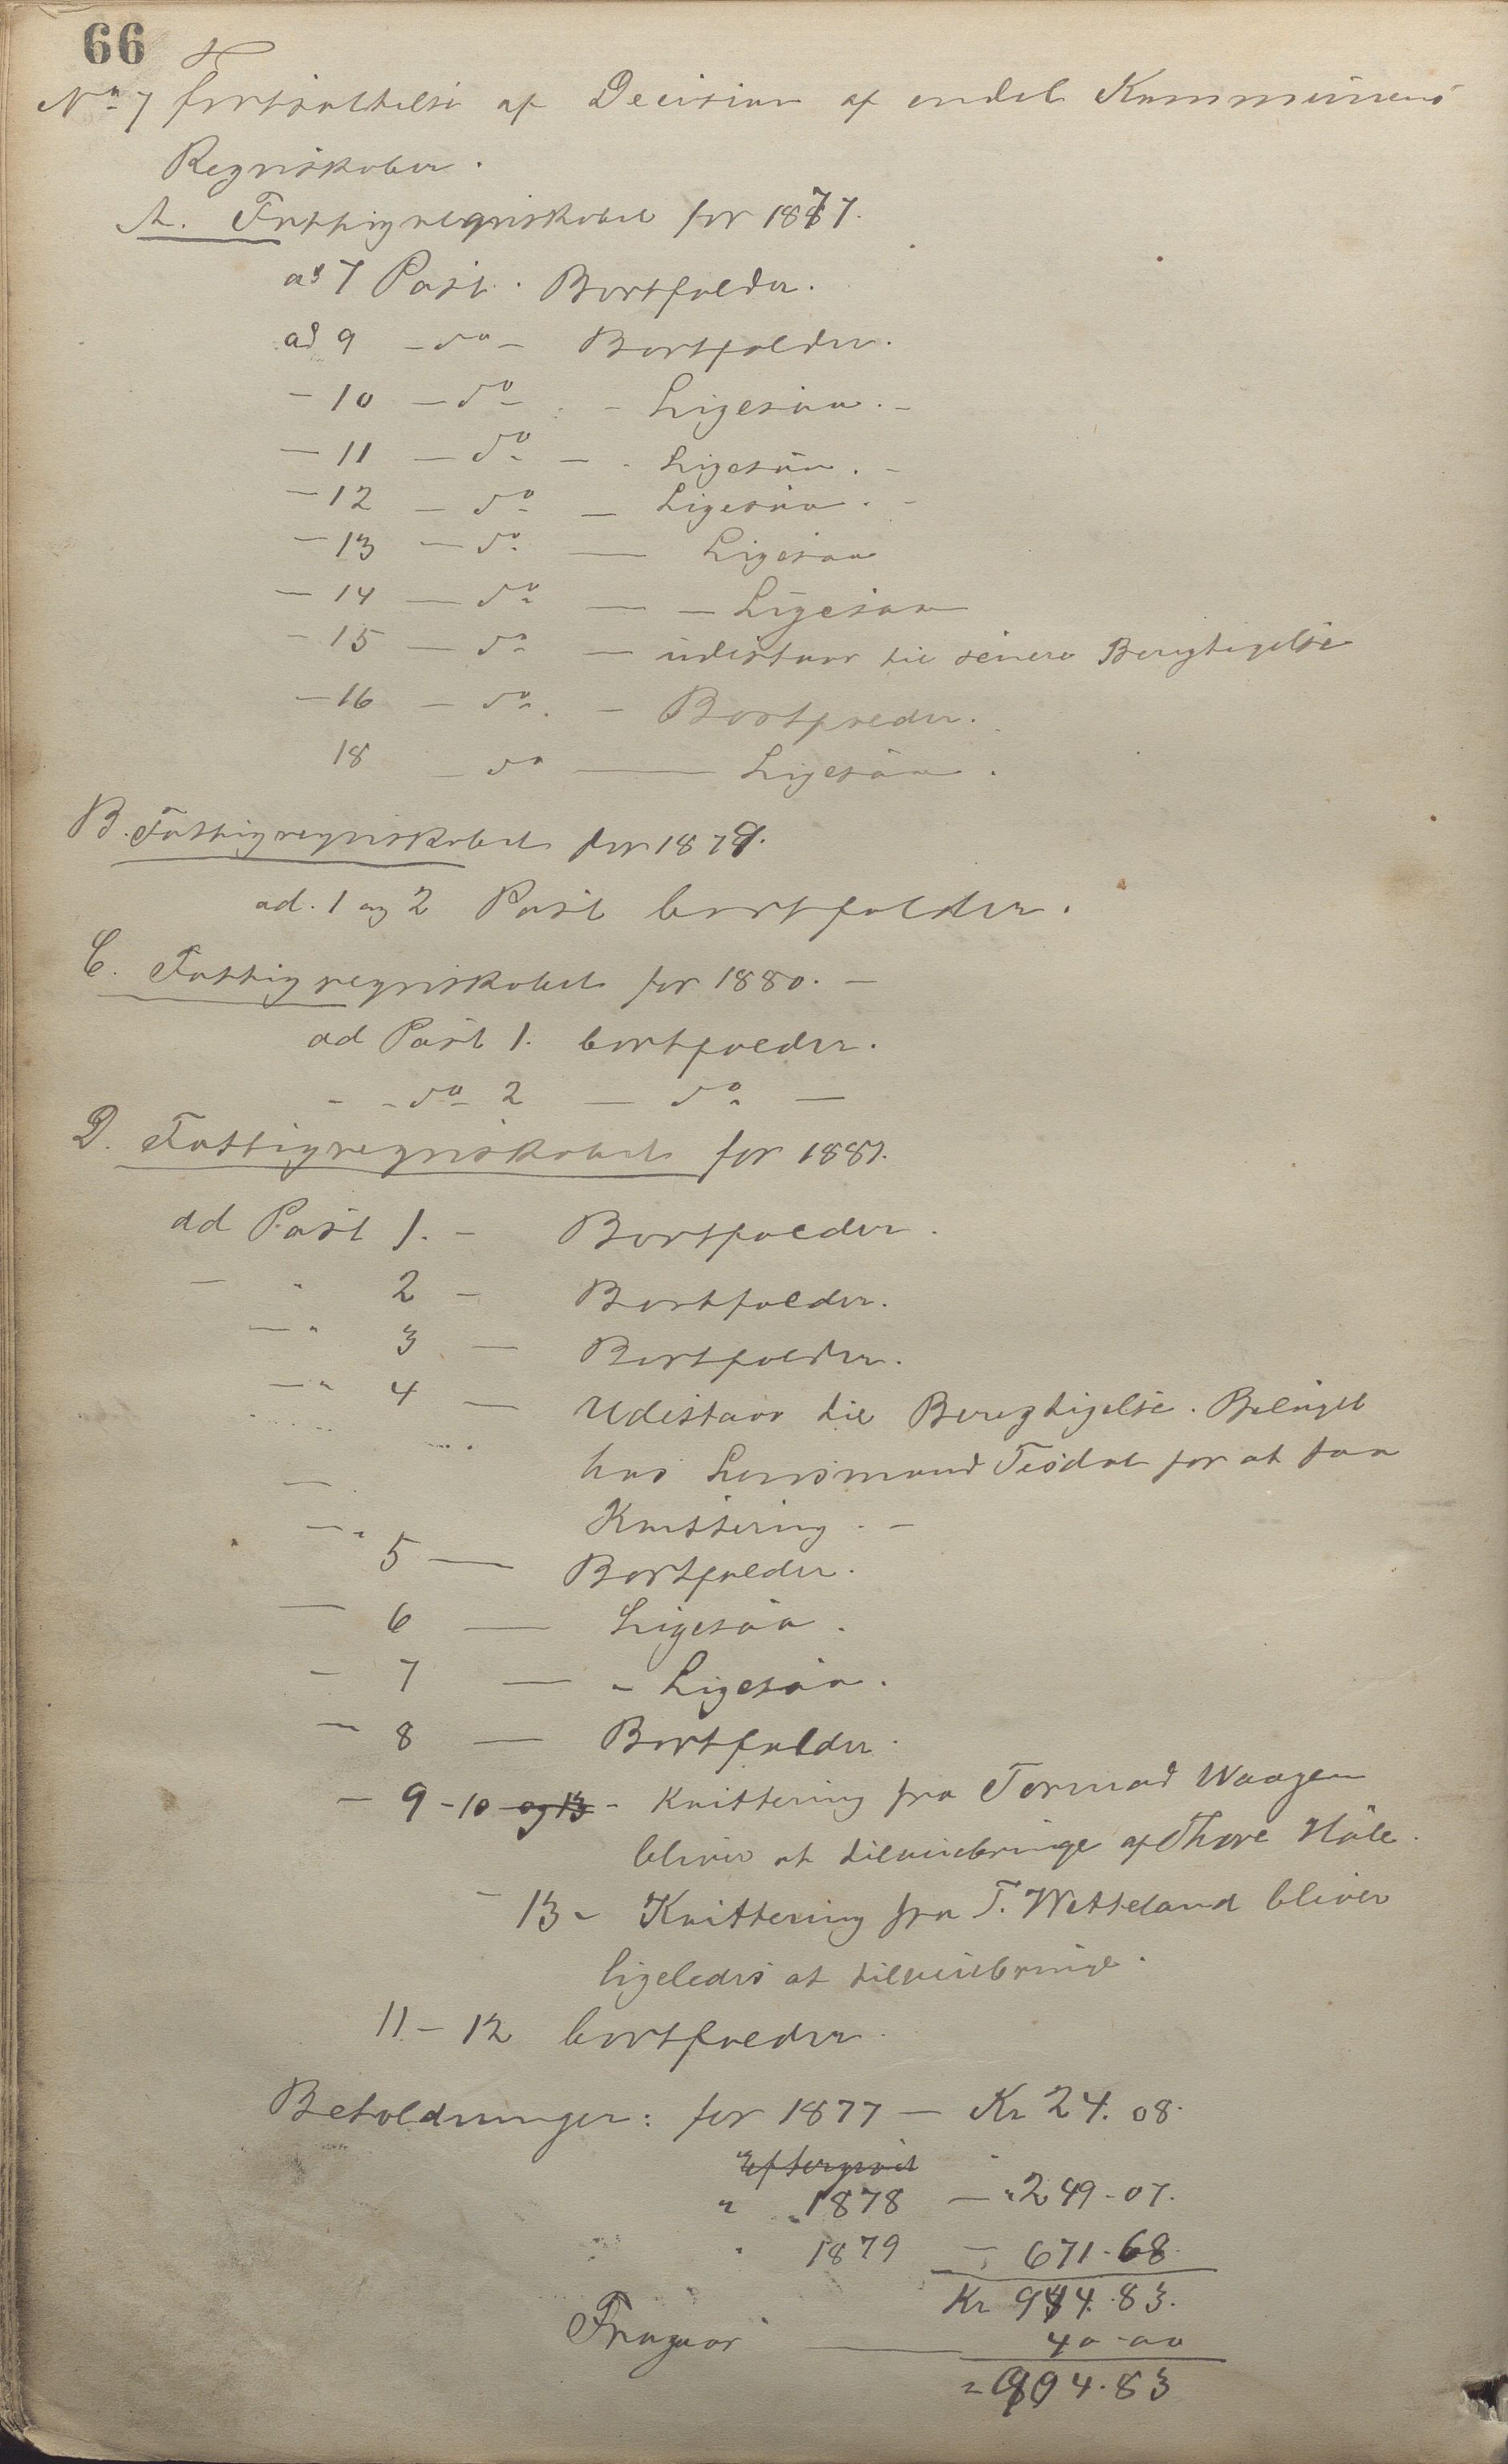 66
No 7 fortsættelse af Decision af endel Kommunens
Regnskaber.
A. Fattigregnskabet for 1877.
ad 7 Post. Bortfalder.
ad 9 - do - Bortfalder.
- 10 - do - Ligesaa. -
- 11 - do - - Ligesaa. -
- 12 - do - Ligesaa. -
- 13 - do - Ligesaa
- 14 - do - - Ligesaa
- 15 - do - udestaar til senere Berigtigelse
- 16 - do. - Bortfalder.
18 - do - Ligesaa.
B. Fattigregnskabet for 1879.
ad. 1 og 2 Post bortfalder.
C. Fattigregnskabet for 1880. -
ad Post 1. bortfalder.
- - do 2 - do -
D. Fattigregnskabet for 1881.
ad Post 1. - Bortfalder.
- " 2 - Bortfalder.
- " 3 - Bortfalder.
- " 4 - Udestaar til Berigtigelse. Beløpet
hos Lensmand Tisdal for at faa
Kvittering. -
- " 5 - Bortfalder.
- 6 - Ligesaa.
- 7 - - Ligesaa.
- 8 - Bortfalder.
- 9 - 10 og 13 - Kvittering fra Tormod Waagen
bliver at tilveiebringe af Thore Høle.
- 13 - Kvittering fra T. Wetteland bliver
ligeledes at tilveiebringe.
11 - 12 bortfalder.
Beholdninger: for 1877 - Kr 24. 08.
Eftergivet
" 1878 - " 249 - 07.
" 1879 - 671 - 68.
Kr 944. 83.
Fragaar - 40 - 00
= 904. 83